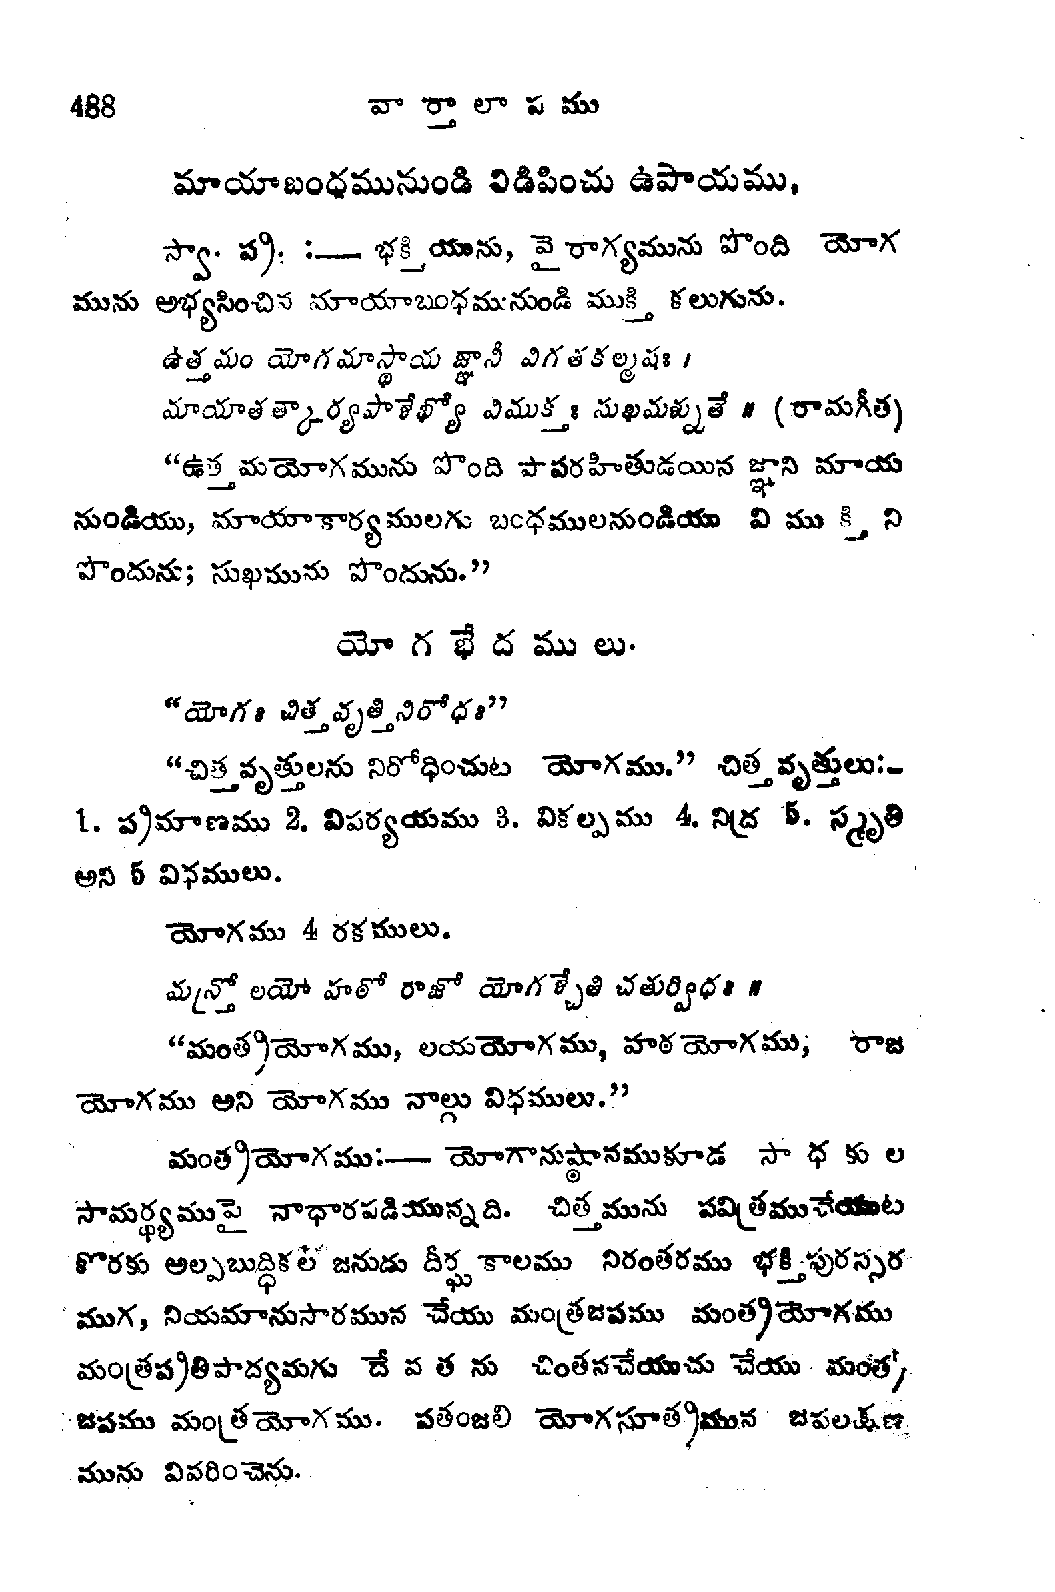 488 వా ర్తా లా ప ము
మాయాబంధమునుండి విడిపించు ఉపాయము,
స్వా. ప్ర. :— భక్తియును, వైరాగ్యమును పొంది యోగ
మును అభ్యసించిన మాయాబంధమునుండి ముక్తి కలుగును.
ఉత్తమం యోగమాస్థాయ జ్ఞానీ విగతకల్మషః ।
మాయాతత్కార్యపాశేభ్యో విముక్తః సుఖమశ్నుతే ॥ (రామగీత)
“ఉత్తమయోగమును పొంది పాపరహితుడయిన జ్ఞాని మాయ
నుండియు, మాయాకార్యములగు బంధములనుండియు వి ము క్తి ని
పొందును; సుఖమును పొందును.”
యో గ భే ద ము లు.
“యోగః చిత్తవృత్తినిరోధః”
“చిత్తవృత్తులను నిరోధించుట యోగము.” చిత్తవృత్తులు:-
1. ప్రమాణము 2. విపర్యయము 3. వికల్పము 4. నిద్ర 5. స్మృతి
అని 5 విధములు.
యోగము 4 రకములు.
మన్త్రో లయో హఠో రాజో యోగశ్చేతి చతుర్విధః ॥
“మంత్రయోగము, లయయోగము, హఠయోగము, రాజ
యోగము అని యోగము నాల్గు విధములు.”
మంత్రయోగము:— యోగానుష్ఠానముకూడ సా ధ కు ల
సామర్థ్యముపై నాధారపడియున్నది. చిత్తమును పవిత్రముచేయుట
కొరకు అల్పబుద్ధికల జనుడు దీర్ఘ కాలము నిరంతరము భక్తిపురస్సర
ముగ, నియమానుసారమున చేయు మంత్రజపము మంత్రయోగము
మంత్రప్రతిపాద్యమగు దే వ త ను చింతనచేయుచు చేయు మంత్ర
జపము మంత్రయోగము. పతంజలి యోగసూత్రమున జపలక్షణ
మును వివరించెను.